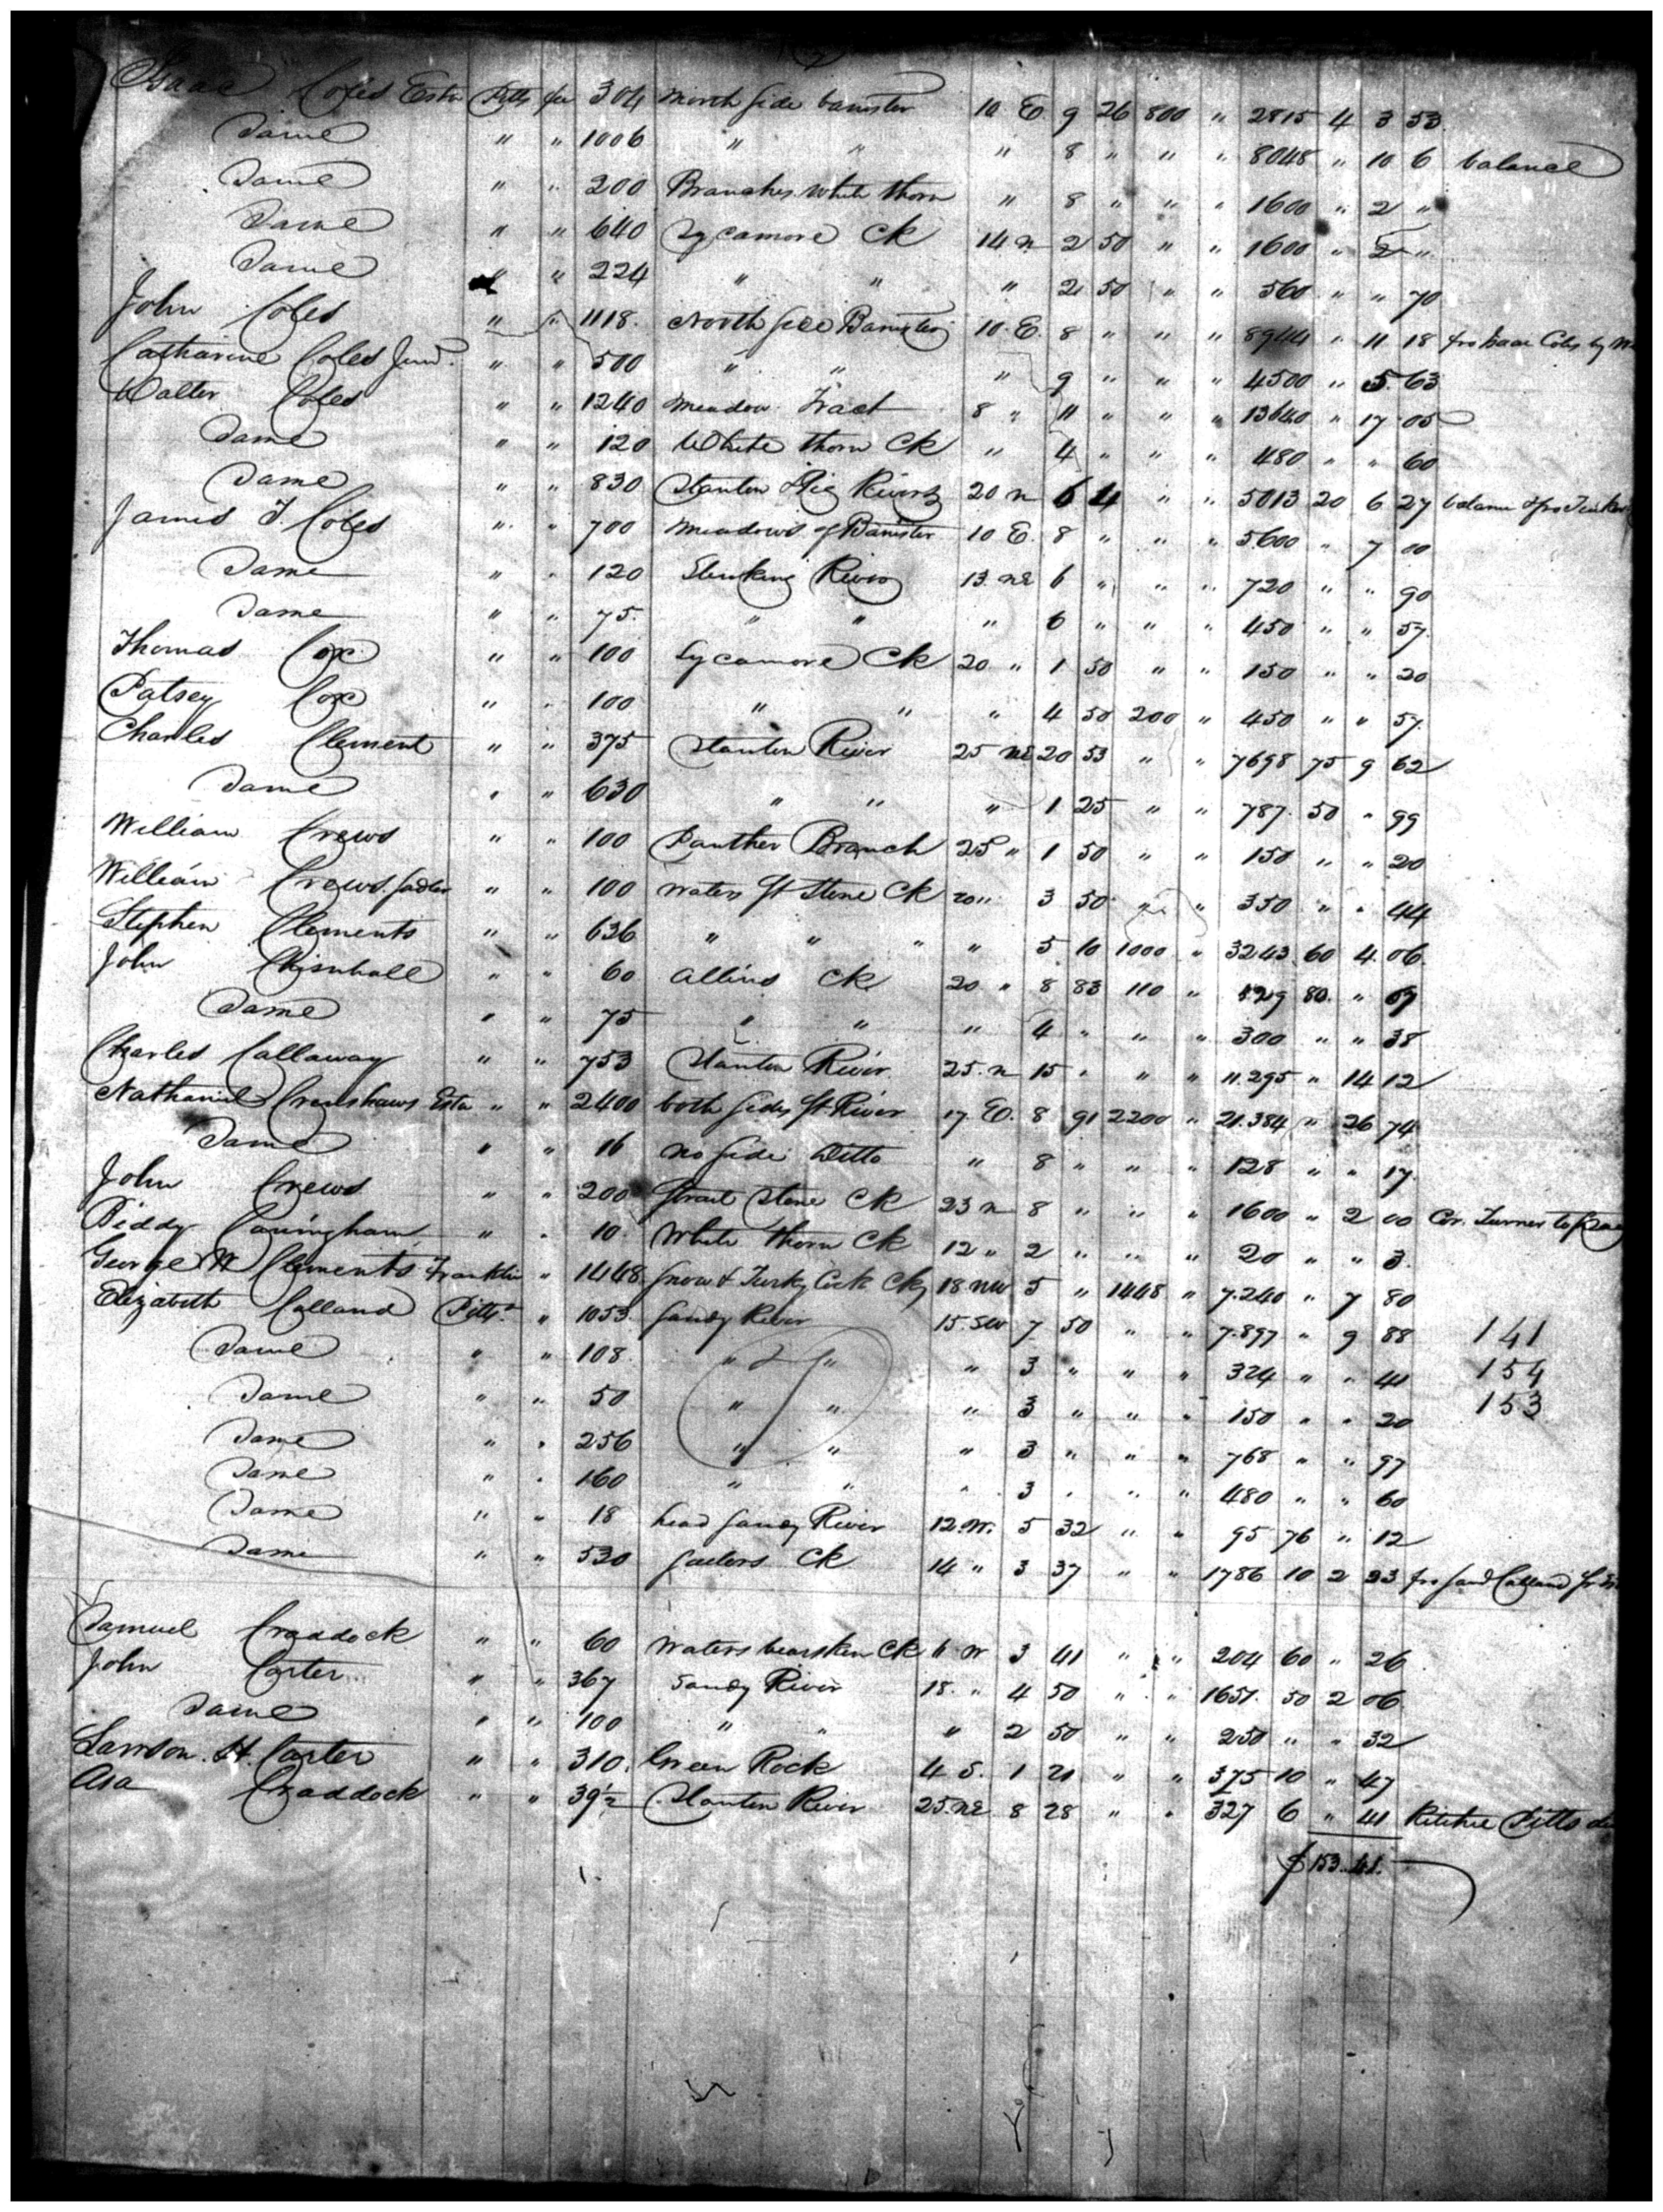 Isaac Coles Esta Pitts fee 304 North side banister 10 E 9 26 800 " 2815 4 3 53
Same " " 1006 " " " 8 " " " 8048 " 10 6 balance
Same " " 200 Branches White thorn " 8 " " " 1600 " 2 "
Same " " 640 Sycamore Ck 14 N 2 50 " " 1600 " 2 "
Same " " 224 " " " 2 50 " " 560 " " 70
John Coles " " 1118 North side Banister 10 E. 8 " " " 8944 " 11 18 fro Isaac Coles by
Catharine Coles Junr. " " 500 " " " 9 " " " 4500 " 5.63
Walter Coles " " 1240 Meadow Tract 8 " 11 " " " 13640 " 17 05
Same " " 120 White thorn Ck " 4 " " " 480 " " 60
Same " " 830 Stanton & Pig Rivers 20 N 6 4 " " 5013 20 6 27 balance
James T. Coles " " 700 Meadows of Banister 10 E. 8 " " " 5600 " 7 00
Same " " 120 Stinking River 13 NE 6 " " " 720 " " 90
Same " " 75 " " " 6 " " " 450 " " 57
Thomas Cox " " 100 Sycamore Ck 20 " 1 50 " " 150 " " 20
Patsey Cox " " 100 " " " 4 50 200 " 450 " " 57
Charles Clement " " 375 Stanton River 25 NE 20 53 " " 7698 75 9 62
Same " " 630 " " " 1 25 " " 787 50 " 99
William Crews " " 100 Panther Branch 25 " 1 50 " " 150 " " 20
William Crews Sadler " " 100 Waters St Stone Ck 20 " 3 50 " " 350 " " 44
Stephen Clements " " 636 " " " " 5 10 1000 " 3243 60 4.06
John Chisnhall " " 60 Allins Ck 20 " 8 83 110 " 529 80 " 67
Same " " 75 " " " 4 " " " 300 " " 38
Charles Callaway " " 753 Stanton River 25 N 15 " " " 11.295 " 14 12
Nathaniel Crenshaws Esta " " 2400 both sides St. River 17 E. 8 91 2200 " 21.384 " 26 74
Same " " 16 No side Ditto " 8 " " " 128 " " 17
John Crews " " 200 Strait Stone Ck 23 N 8 " " " 1600 " 2 00 Cor. Turner to
Biddy Cuningham " " 10 White thorn Ck 12 " 2 " " " 20 " " 3
George W Clements Franklin " 1448 Snow & Turky Cock Cks 18 NW 5 " 1448 " 7.240 " 7 80
Elizabeth Calland Pitts. " 1053 Sandy River 15. SW 7 50 " " 7.897 " 9 88 141
Same " " 108 " " " 3 " " " 324 " " 41 154
Same " " 50 " " " 3 " " " 150 " " 20 153
Same " " 256 " " " 3 " " " 768 " " 97
Same " " 160 " " " 3 " " " 480 " " 60
Same " " 18 head Sandy River 12. W. 5 32 " " 95 76 " 12
Same " " 530 Ck 14 " 3 37 " " 1786 10 2 23 fro Saml Calland
Samuel Craddock " " 60 Waters bearskin Ck 6 W 3 41 " " 204 60 " 26
John Carter " " 367 Sandy River 18 " 4 50 " " 1651. 50 2 06
Same " " 100 " " " 2 50 " " 250 " " 32
Lawson H. Carter " " 310 Green Rock 4 S. 1 21 " " 375 10 " 47
Asa Craddock " " 39½ Stanton River 25. NE 8 28 " " 327 6 " 41 Ritchie Pitts
$153.41.